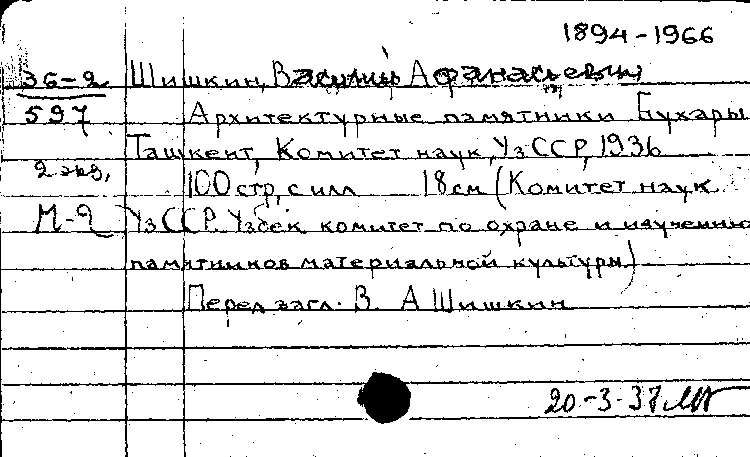 1894-1966
36-2 Шишкин, Василий Афанасьевич
597 Архитектурные памятники Бухары
Ташкент, Комитет наук, УзССР, 1936
2 экз,
100 стр, с илл 18 см (Комитет наук
М-2 УзССР. Узбек комитет по охране и изучению
памятников материальной культуры)
Перед загл. В. А Шишкин
20-3-37